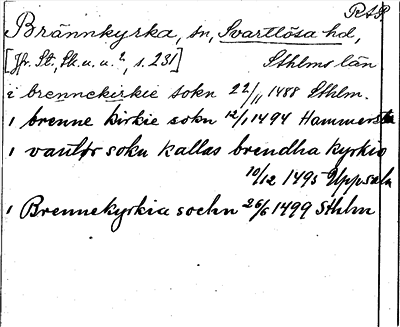 RAP.
Brännkyrka, sn, Svartlösa hd,
[Jfr. St., Sk. u. u.², s. 231] Sthlms län
i brennekirkie sokn 22/11 1488 Sthlm.
i brenne kirkie sokn 12/1 1494 Hammersta
i sokn kallas brendha kyrkio
10/12 1495 Uppsala
i Brennekyrkia sochn 26/6 1499 Sthlm